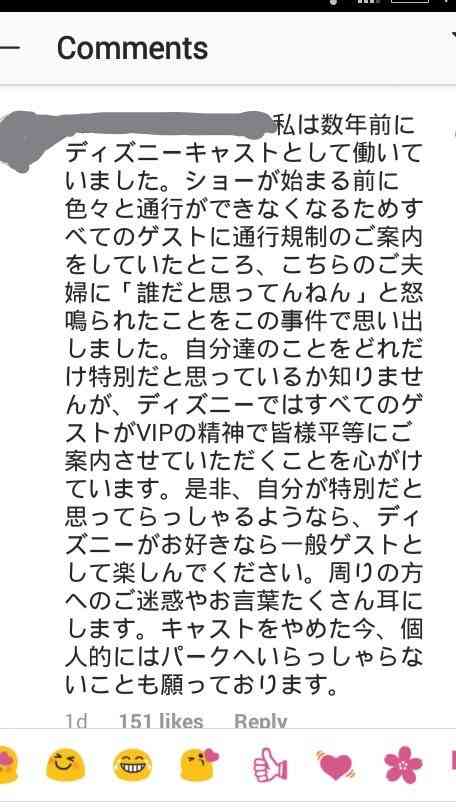 Comments
私は数年前に
ディズニーキャストとして働いて
いました。ショーが始まる前に
色々と通行ができなくなるためす
べてのゲストに通行規制のご案内
をしていたところ、こちらのご夫
婦に「誰だと思ってんねん」と怒
鳴られたことをこの事件で思い出
しました。自分達のことをどれだ
け特別だと思っているか知りませ
んが、ディズニーではすべてのゲ
ストがVIPの精神で皆様平等にご
案内させていただくことを心がけ
ています。是非、自分が特別だと
思ってらっしゃるようなら、ディ
ズニーがお好きなら一般ゲストと
して楽しんでください。周りの方
へのご迷惑やお言葉たくさん耳に
します。キャストをやめた今、個
人的にはパークへいらっしゃらな
いことも願っております。
1d 151 likes Reply